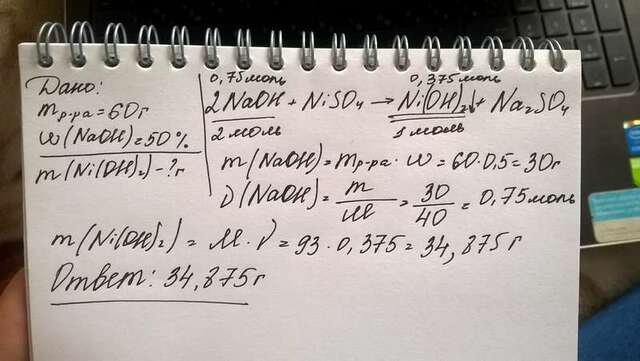 Дано:
mр-ра = 60г
ω(NaOH) = 50%
m(Ni(OH)₂) - ?г
0,75моль 0,375моль
2NaOH + NiSO₄ → Ni(OH)₂↓ + Na₂SO₄
2моль 1моль
m(NaOH) = mр-ра · ω = 60 · 0,5 = 30г
ν(NaOH) = m/M = 30/40 = 0,75моль
m(Ni(OH)₂) = M · ν = 93 · 0,375 = 34,875г
Ответ: 34,875г